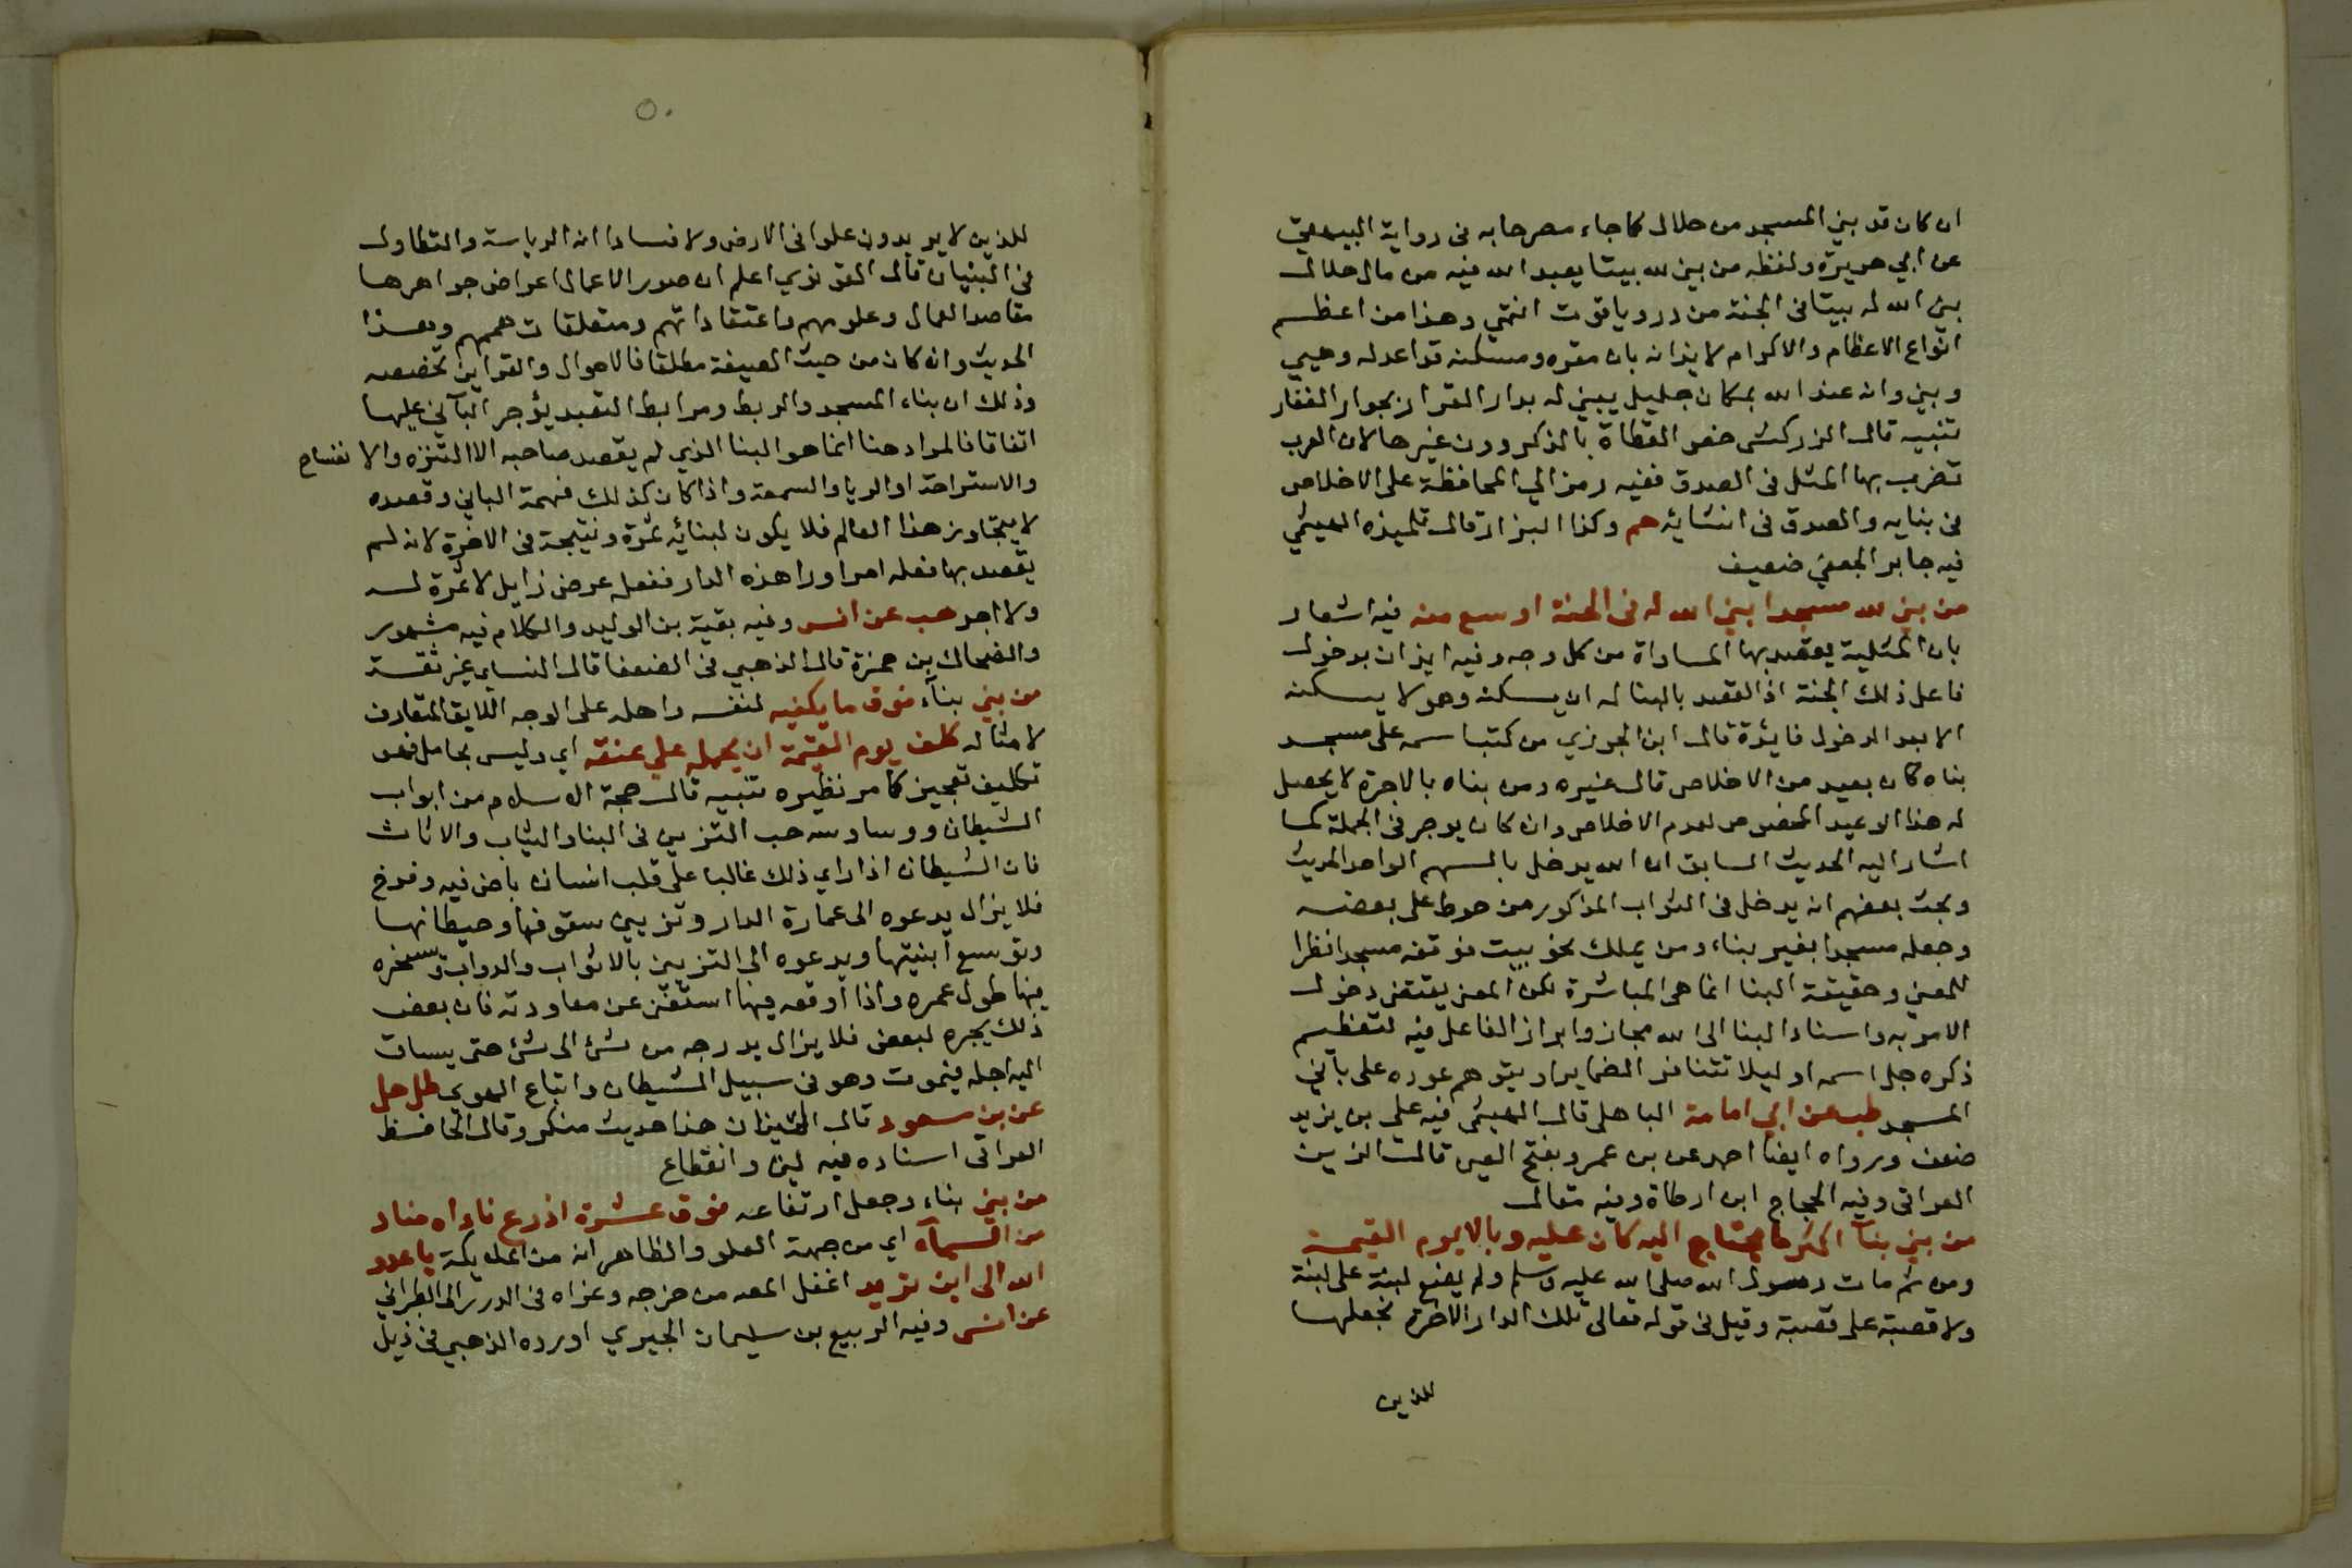 ان كان قد بنى المسجد من حلال كما جاء مصرحا به فى رواية البيهقي
عن ابي هريرة ولفظه من بنى لله بيتا يعبد الله فيه من مال حلال
بنى الله له بيتا فى الجنة من در وياقوت انتهي وهذا من اعظم
انواع الاعظام والاكرام لايذانه بان مقره ومسكنه قد اعد له وهيي
وبني وانه عند الله بمكان جليل يبني له بدار القرار بجوار الغفار
تنبيه قال الزركشى خص القطاة بالذكر دون غيرها لان العرب
تضرب بها المثل فى الصدق ففيه رمز الي المحافظة على الاخلاص
فى بنايه والصدق فى انشائه هم وكذا البزار قال تلميذه الهيثمي
فيه جابر الجعفي ضعيف
من بنى لله مسجدا بنى الله له فى الجنة اوسع منه فيه اشعار
بان المثلية يقصد بها المساواة من كل وجه وفيه ايذان بدخول
فاعل ذلك الجنة اذ القصد بالبنا له ان يسكنه وهو لا يسكنه
الا بعد الدخول فايدة قال ابن الجوزي من كتب اسمه على مسجد
بناه كان بعيد من الاخلاص قال غيره ومن بناه بالاجرة لا يحصل
له هذا الوعيد المخصوص لعدم الاخلاص وان كان يوجر فى الجملة كما
اشار اليه الحديث السابق ان الله يدخل بالسهم الواحد الحديث
وبحث بعضهم انه يدخل فى الثواب المذكور من حوط على بعضه
وجعله مسجدا بغير بناء ومن يملك نحو بيت فوقفه مسجدا نظرا
للمعنى وحقيقة البنا انما هى المباشرة لكن المعنى يقتضى دخول
الامر به واسناد البنا الى الله مجاز وابراز الفاعل فيه لتعظيم
ذكره جل اسمه او ليلا تتنافر الضماير او يتوهم عوده على بآني
المسجد طب عن ابي امامة الباهلى قال الهيثمى فيه على بن يزيد
ضعف ورواه ايضا احمد عن بن عمرو بفتح العين قال الزين
العراقى وفيه الحجاج ابن ارطاة وفيه مقال
من بنى بنآ اكثر مما يحتاج اليه كان عليه وبالا يوم القيمة
ومن ثم مات رسول الله صلى الله عليه وسلم ولم يضع لبنة على لبنة
ولا قصبة على قصبة وقيل فى قوله تعالى تلك الدار الاخرة نجعلها
للذين
٥٠
للذين لا يريدون علوا فى الارض ولا فسادا انه الرياسة والتطاول
فى البنيان قال القونوي اعلم ان صور الاعمال اعراض جواهرها
مقاصد العمال وعلومهم واعتقاداتهم ومتعلقات هممهم وهذا
الحديث وان كان من حيث الصيغة مطلقا فالاحوال والقراين تخصصه
وذلك ان بناء المسجد والربط ومرابط التعبد يؤجر البآنى عليها
اتفاقا فالمراد هنا انما هو البنا الذي لم يقصد صاحبه الا التنزه والانفساح
والاستراحة او الريا والسمعة واذا كان كذلك فهمة الباني وقصده
لا يتجاوز هذا العالم فلا يكون لبنائه ثمرة ونتيجة فى الاخرة لانه لم
يقصد بها فعله امرا ورا هذه الدار ففعله عرض زايل لا ثمرة له
ولا اجر هب عن انس وفيه بقية بن الوليد والكلام فيه مشهور
والضحاك بن حمزة قال الذهبي فى الضعفا قال النساي غير ثقة
من بنى بنآء فوق ما يكفيه لنفسه واهله على الوجه اللايق المتعارف
لامثاله كلف يوم القيمة ان يحمله علي عنقه اي وليس بحامل فهو
تكليف تعجيز كما مر نظيره تنبيه قال حجة الاسلام من ابواب
الشيطان ووساوسه حب التزيين فى البنا والثياب والاثاث
فان الشيطان اذا راي ذلك غالبا على قلب انسان باض فيه وفرخ
فلا يزال يدعوه الى عمارة الدار وتزيين سقوفها وحيطانها
وتوسع ابنيتها ويدعوه الى التزيين بالاثواب والدواب ويسخره
فيها طول عمره واذا اوقعه فيها استغنى عن معاودته فان بعض
ذلك يجره لبعض فلا يزال يدرجه من شئ الى شئ حتى يساق
اليه اجله فيموت وهو فى سبيل الشيطان واتباع الهوي طب حل
عن بن مسعود قال الميزان هذا حديث منكر وقال الحافظ
العراقى اسناده فيه لين وانقطاع
من بنى بناء وجعل ارتفاعه فوق عشرة اذرع ناداه مناد
من السمآء اي من جهة العلو والظاهر انه من الملايكة يا عدو
الله الى اين تريد اغفل المصـ من خرجه وعزاه فى الدرر الى الطبراني
عن انس وفيه الربيع بن سليمان الجيزي اورده الذهبي فى ذيل